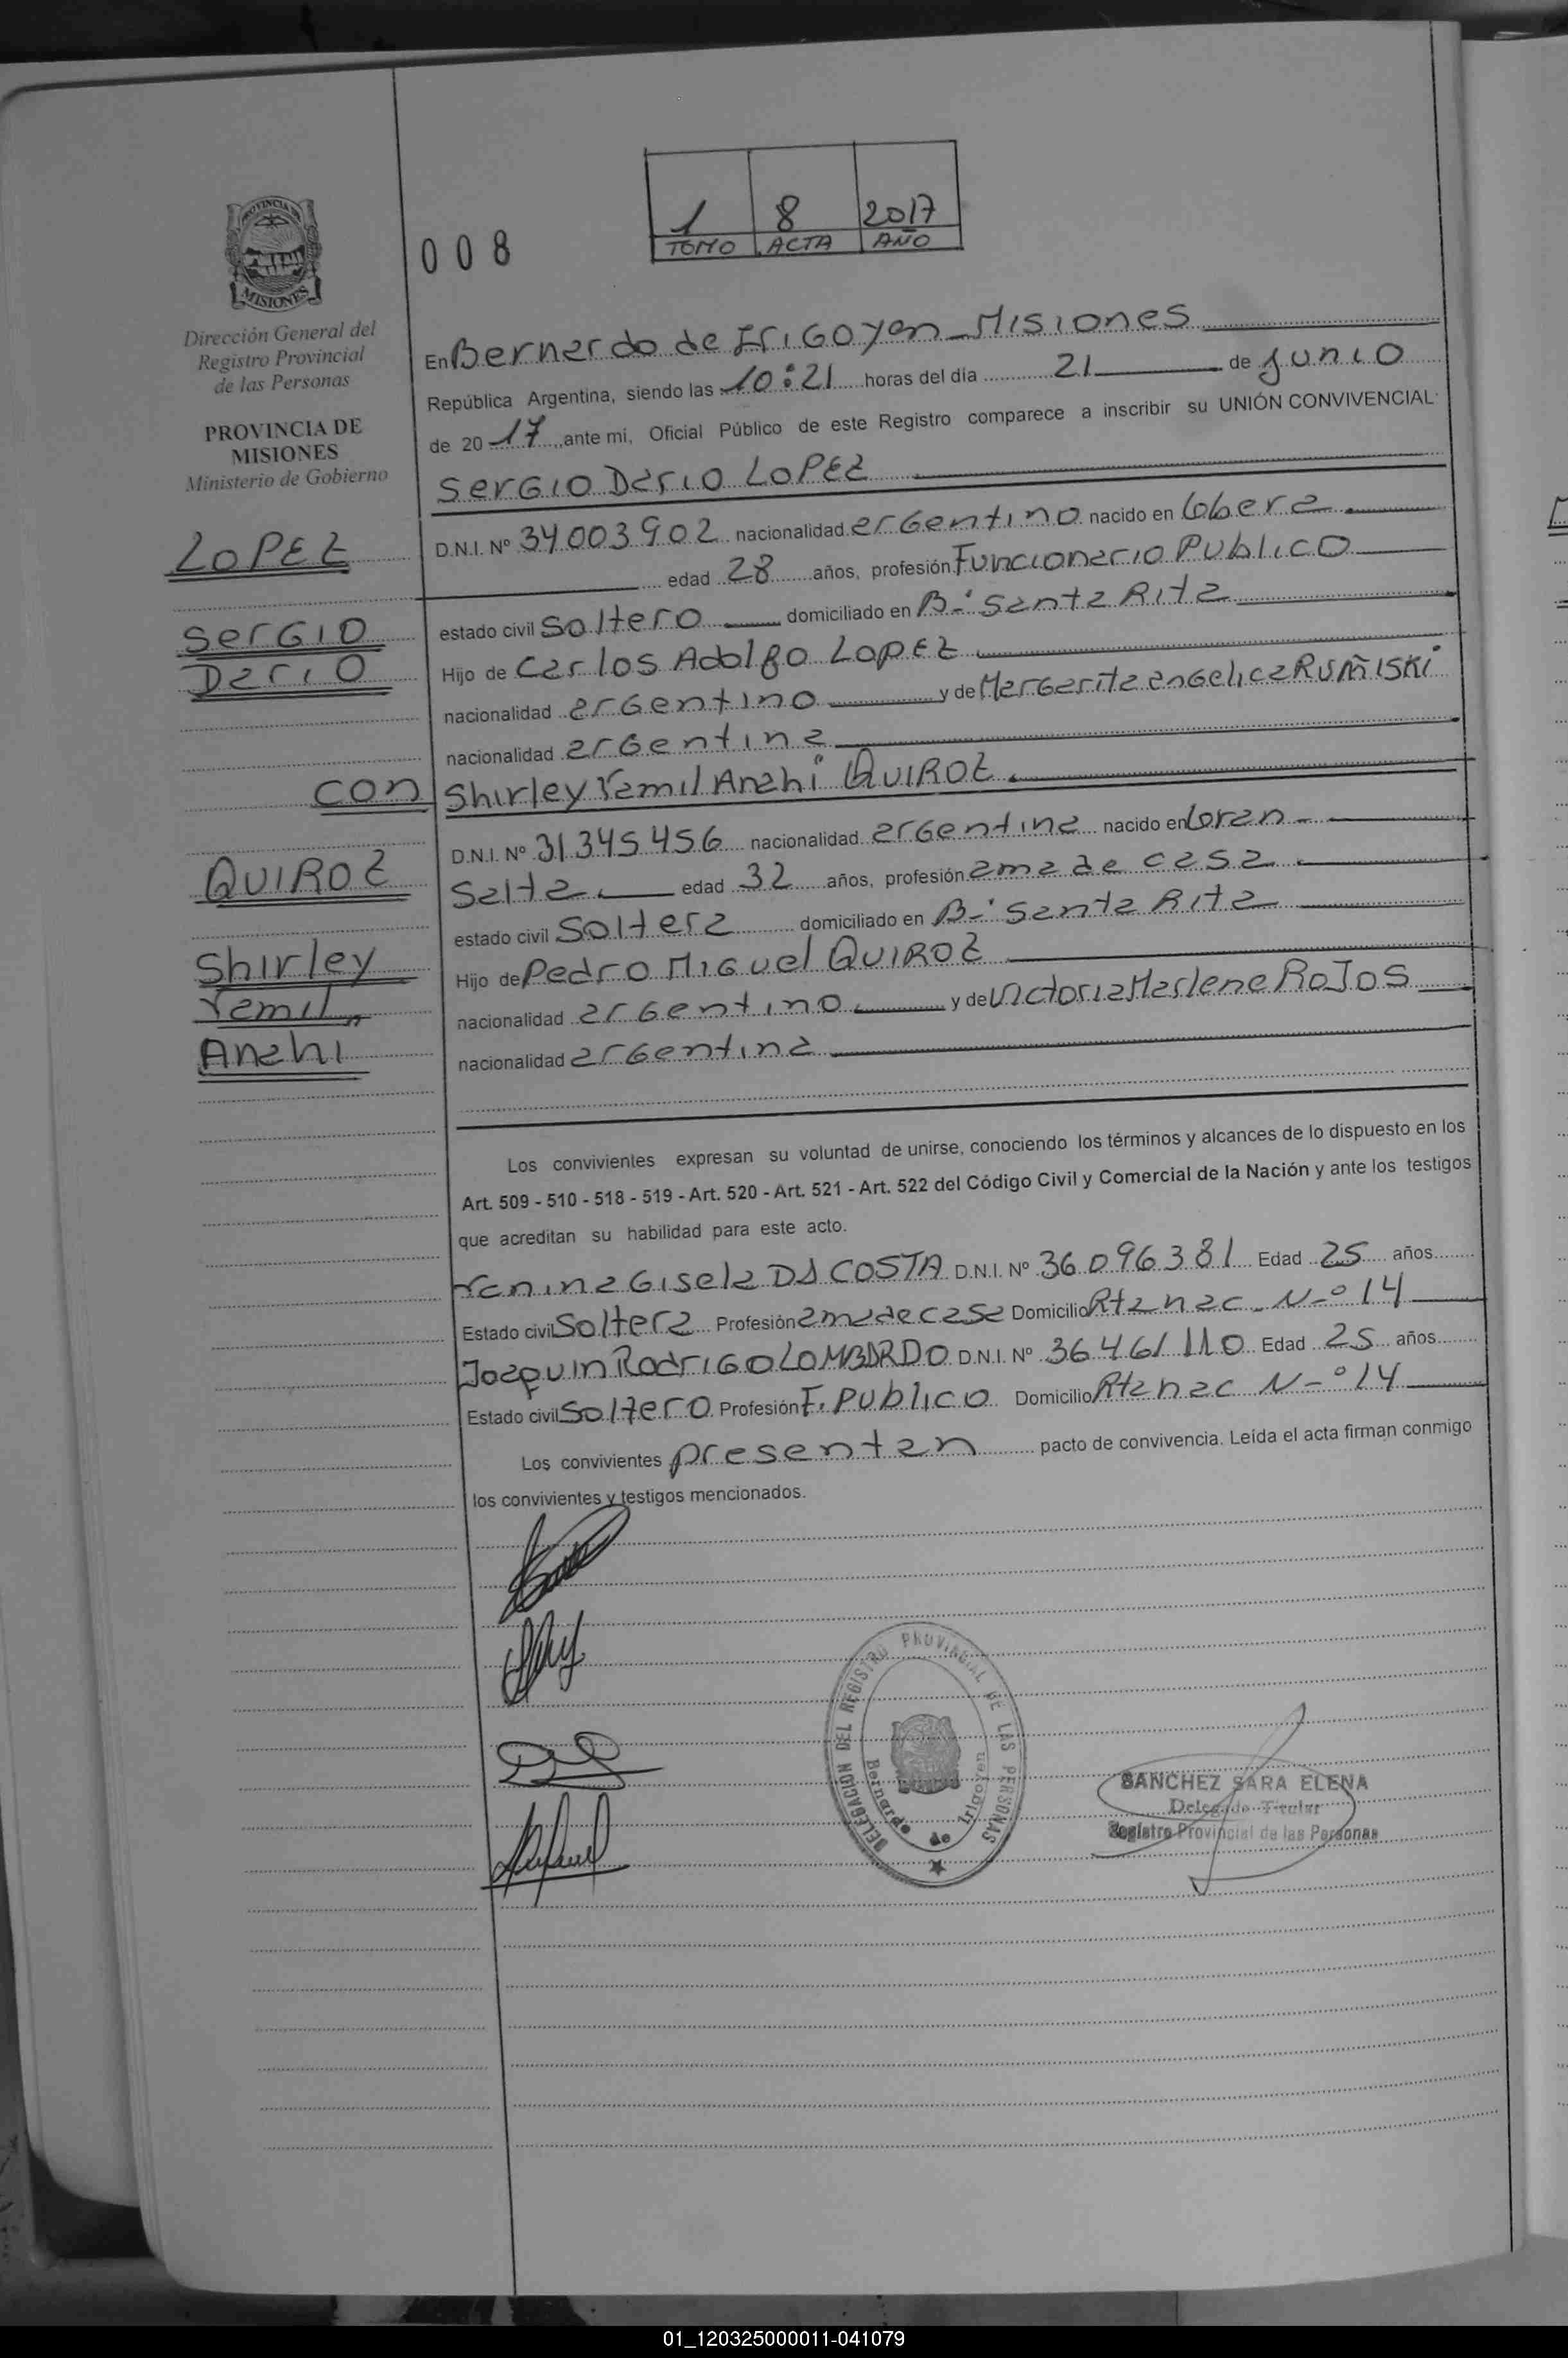 1 8 2017
TOMO ACTA AÑO
008
PROVINCIA DE
MISIONES
Dirección General del
Registro Provincial
de las Personas
PROVINCIA DE
MISIONES
Ministerio de Gobierno
LOPEZ
SERGIO
DARIO
CON
QUIROZ
Shirley
Yamil
Anahi
En Bernardo de IRIGOYEN - MISIONES
República Argentina, siendo las 10:21 horas del día 21 de Junio
de 2017, ante mi, Oficial Público de este Registro comparece a inscribir su UNIÓN CONVIVENCIAL:
SERGIO DARIO LOPEZ
D.N.I. Nº 34003902 nacionalidad argentino nacido en Obera
edad 28 años, profesión Funcionario Publico
estado civil Soltero domiciliado en B-º Santa Rita
Hijo de Carlos Adolfo LOPEZ
nacionalidad argentino y de Margarita angelica RUÑISKi
nacionalidad argentina
Shirley Yamil Anahi QUIROZ
D.N.I. Nº 31345456 nacionalidad argentina nacido en Oran -
Salta. edad 32 años, profesión ama de casa
estado civil Soltera domiciliado en B-º Santa Rita
Hijo de Pedro Miguel QUIROZ
nacionalidad argentino y de Victoria Marlene ROJOS
nacionalidad argentina
Los convivientes expresan su voluntad de unirse, conociendo los términos y alcances de lo dispuesto en los
Art. 509 - 510 - 518 - 519 - Art. 520 - Art. 521 - Art. 522 del Código Civil y Comercial de la Nación y ante los testigos
que acreditan su habilidad para este acto.
Yanina Gisela DA COSTA D.N.I. Nº 36096381 Edad 25 años
Estado civil Soltera Profesión ama de casa Domicilio Rtanac N-º 14
Joaquin Rodrigo LOMBARDO D.N.I. Nº 36461110 Edad 25 años
Estado civil Soltero Profesión F. Publico Domicilio Rtanac N-º 14
Los convivientes presentan pacto de convivencia. Leída el acta firman conmigo
los convivientes y testigos mencionados.
DELEGACION DEL REGISTRO PROVINCIAL DE LAS PERSONAS
Bernardo de Irigoyen
SANCHEZ SARA ELENA
Delegada Titular
Registro Provincial de las Personas
01_120325000011-041079